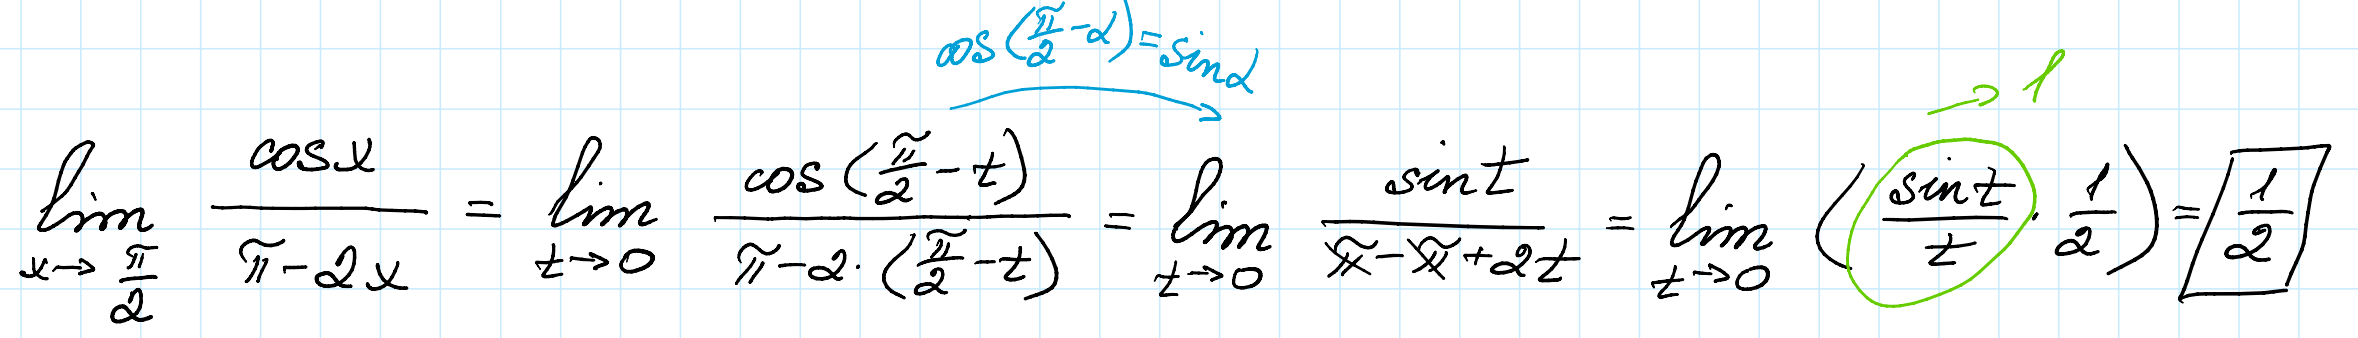 cos(π/2 - α) = sin α
→ 1
lim x→π/2 cos x / (π - 2x) = lim t→0 cos(π/2 - t) / (π - 2·(π/2 - t)) = lim t→0 sin t / (π - π + 2t) = lim t→0 (sin t / t · 1/2) = 1/2